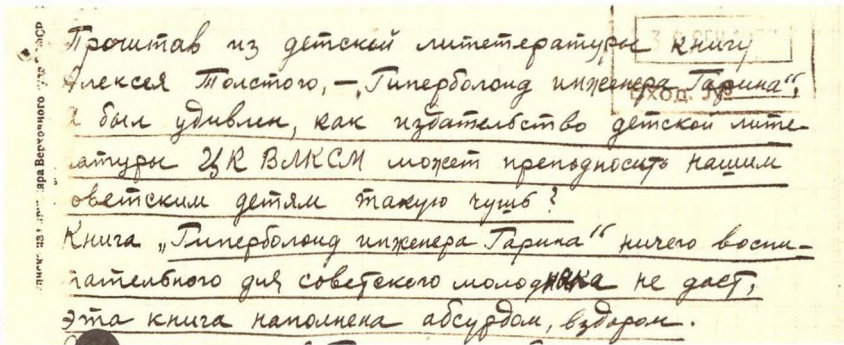 Прочитав из детской литетературы книгу
Алексея Толстого, – „Гиперболоид инженера Гарина“,
Я был удивлен, как избательство детской лите-
ратуры ЦК ВЛКСМ может преподносить нашим
советским детям такую чушь?
Книга „Гиперболоид инженера Гарина“ ничего воспи-
тательного для советского молодняка не даст,
эта книга наполнена абсурдом, вздором.
ВХОД. №